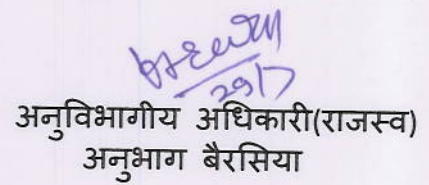 29/7
अनुविभागीय अधिकारी(राजस्व)
अनुभाग बैरसिया